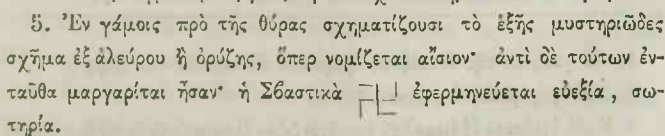 5. Ἐν γάμοις πρὸ τῆς θύρας σχηματίζουσι τὸ ἑξῆς μυστηριῶδες
σχῆμα ἐξ ἀλεύρου ἢ ὀρύζης, ὅπερ νομίζεται αἴσιον· ἀντὶ δὲ τούτων ἐν-
ταῦθα μαργαρίται ἦσαν· ἡ Σβαστικὰ 卍 ἐφερμηνεύεται εὐεξία, σω-
τηρία.